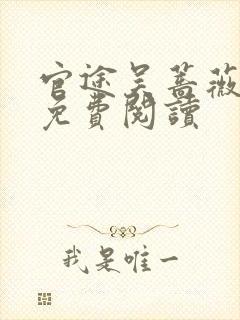 官途吴蔷薇
免費閱讀
我是唯一